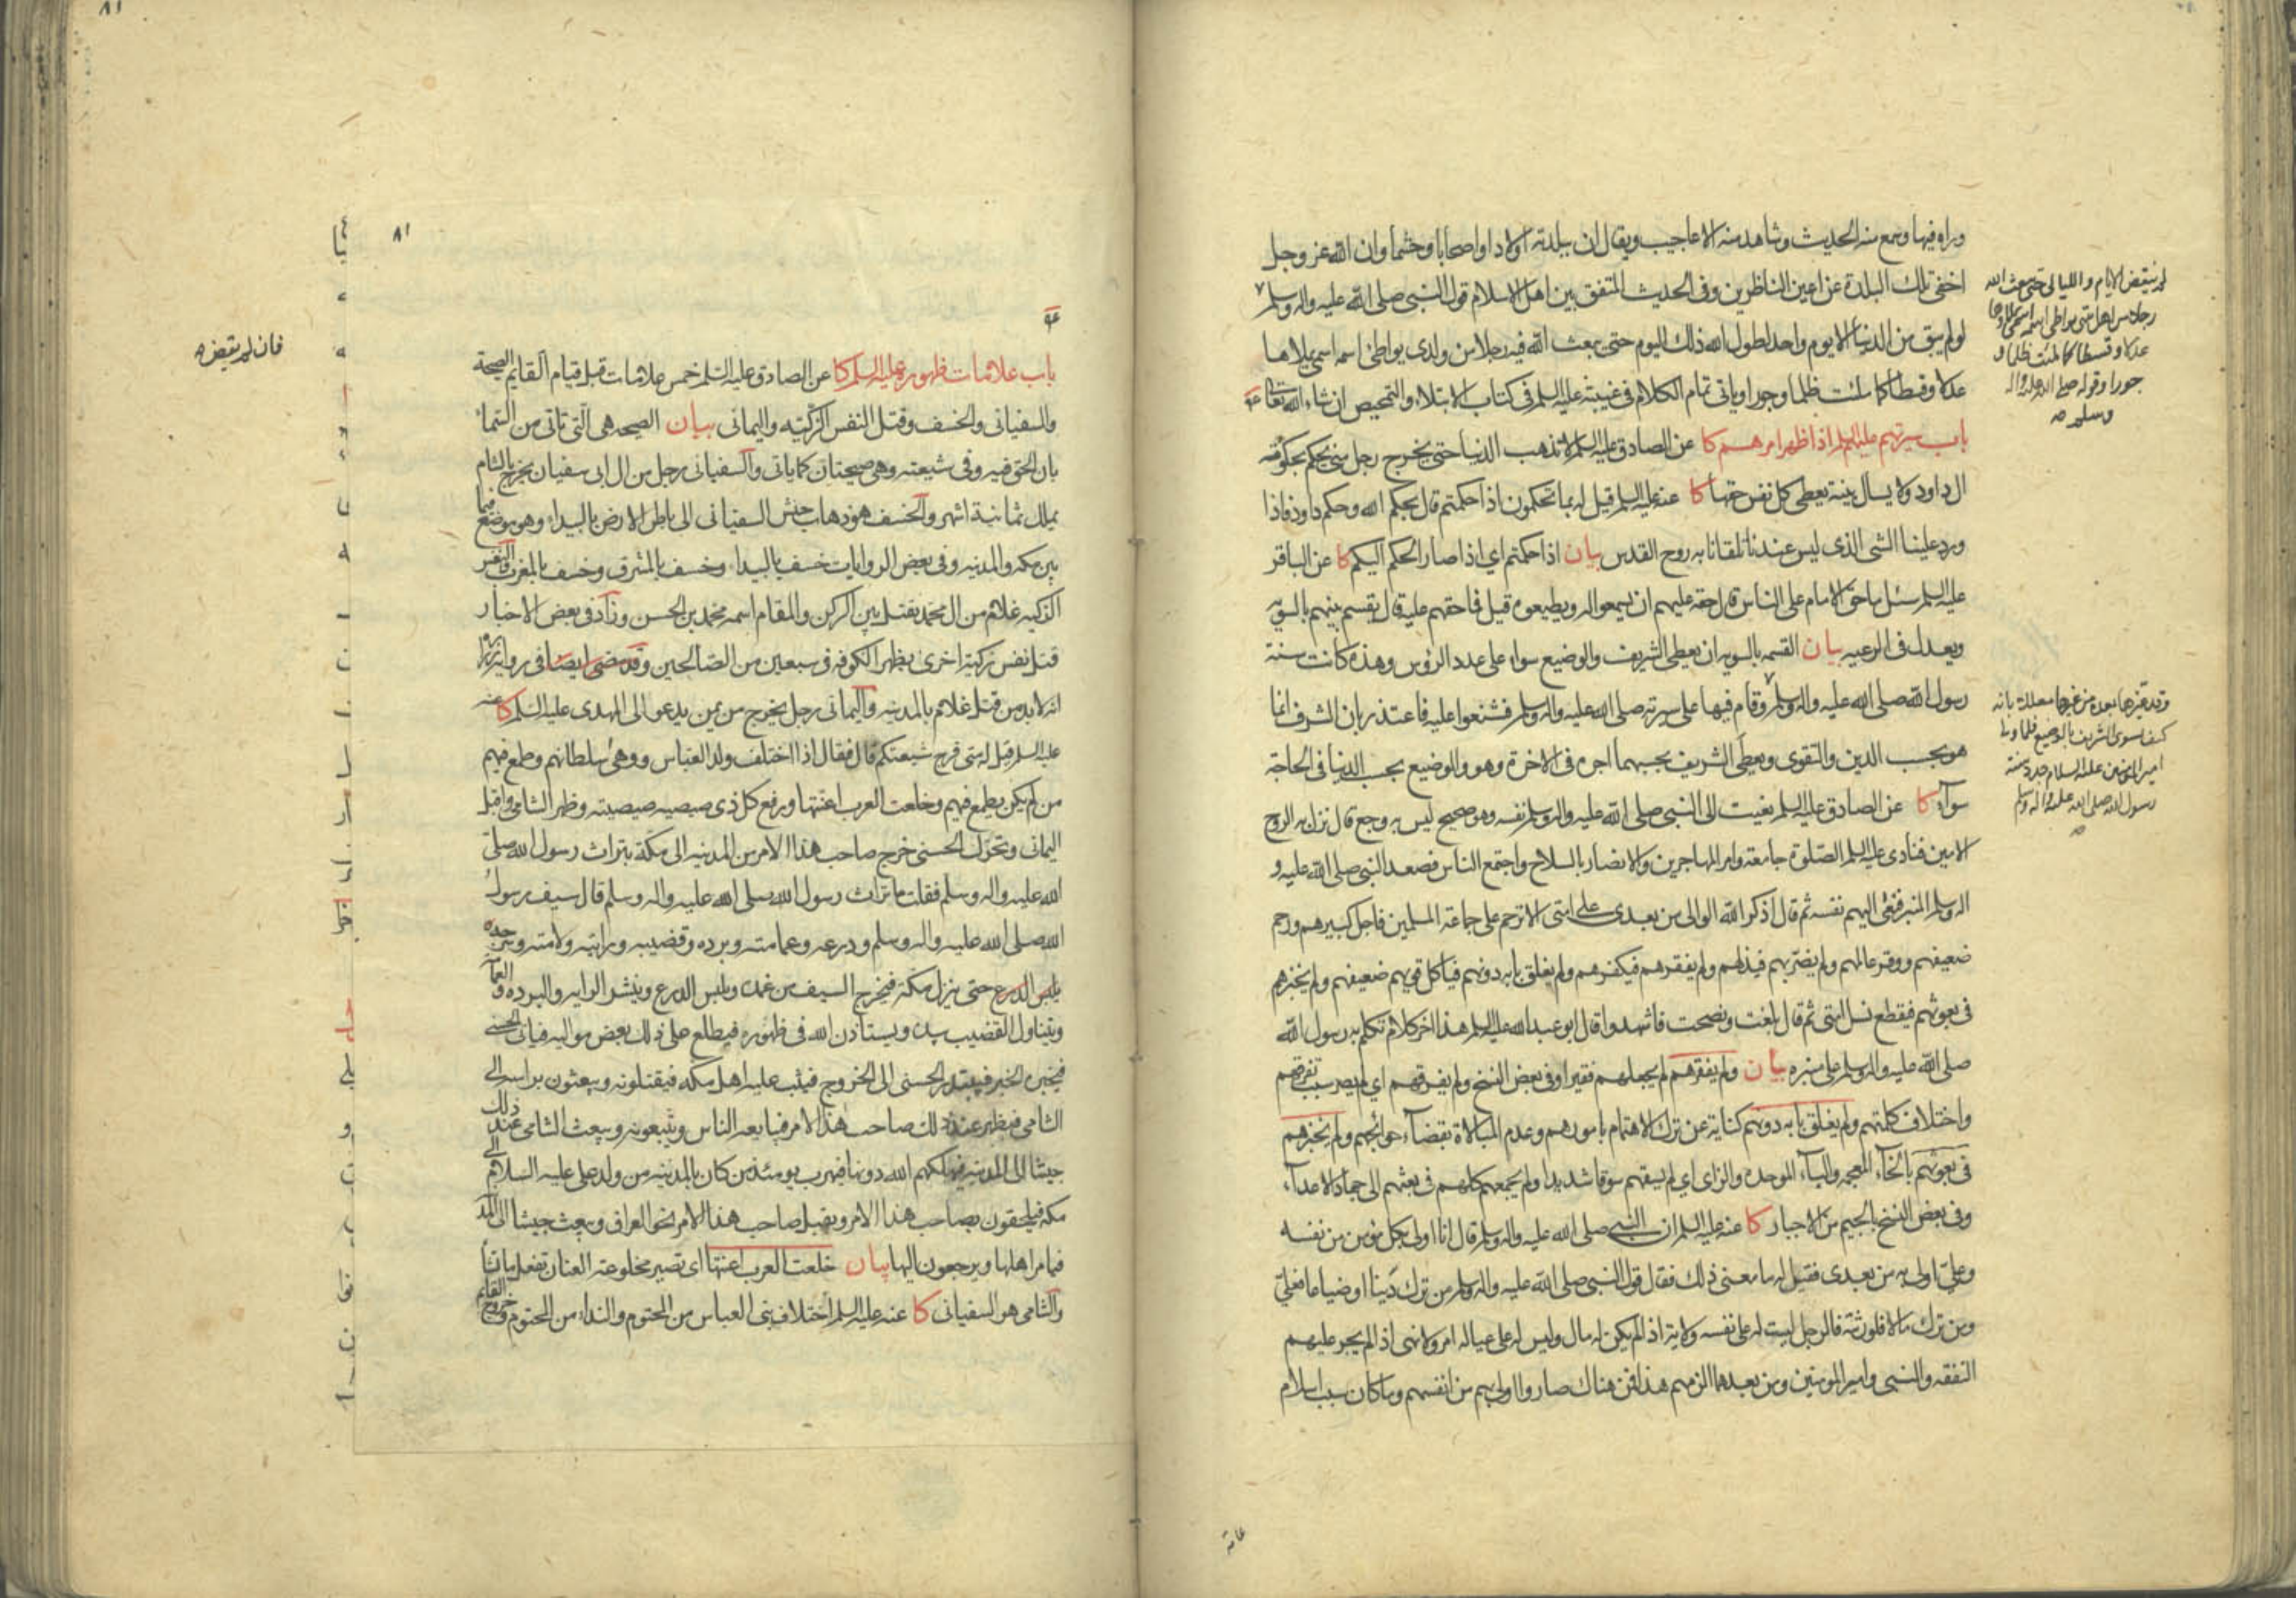 وراه فيها وسمع منه الحديث وشاهد منه الاعاجيب ويقال ان ببلدته اولادا واصحابا وحشما وان الله عز وجل
اخفى تلك البلدة عن اعين الناظرين وفى الحديث المتفق بين اهل الاسلام قول النبى صلى الله عليه واله وسلم
لو لم يبق من الدنيا الا يوم واحد لطول الله ذلك اليوم حتى يبعث الله فيه رجلا من ولدى يواطئ اسمه اسمى يملاها
عدلا وقسطا كما ملئت ظلما وجورا وياتى تمام الكلام فى غيبته عليه السلم فى كتاب الابتلاء والتمحيص ان شاء الله تعالى
باب سيرتهم عليهم السلم اذا ظهر امرهم كا عن الصادق عليه السلم لا تذهب الدنيا حتى يخرج رجل منى يحكم بحكومة
ال داود ولا يسال بينة يعطى كل نفس حقها كا عنه عليه السلم قيل له بما تحكمون اذا حكمتم قال بحكم الله وحكم داود فاذا
ورد علينا الشى الذى ليس عندنا تلقانا به روح القدس بيان اذا حكمتم اي اذا صار الحكم اليكم كا عن الباقر
عليه السلم سئل ما حق الامام على الناس قال حقه عليهم ان يسمعوا له ويطيعوه قيل فما حقهم عليه قال يقسم بينهم بالسويه
ويعدل فى الرعيه بيان القسمه بالسويه ان يعطى الشريف والوضيع سواء على عدد الرؤس وهذه كانت سنة
رسول الله صلى الله عليه واله وسلم وقام فيها على سيرته صلى الله عليه واله وسلم فشنعوا عليه فاعتذر بان الشرف انما
هو بحسب الدين والتقوى ويعطى الشريف بحسبهما اجره فى الاخرة وهو والوضيع بحسب الدنيا فى الحاجة
سوآء كا عن الصادق عليه السلم نعيت الى النبى صلى الله عليه واله وسلم نفسه وهو صحيح ليس به وجع قال نزل به الروح
الامين فنادى عليه السلم الصلوة جامعة وامر المهاجرين والانصار بالسلاح واجتمع الناس فصعد النبى صلى الله عليه و
اله وسلم المنبر فنعى اليهم نفسه ثم قال اذكر الله الوالى من بعدى على امتى الا ترحم على جماعة المسلمين فاجل كبيرهم ورحم
ضعيفهم ووقر عالمهم ولم يضر بهم فيذلهم ولم يفقرهم فيكفرهم ولم يغلق بابه دونهم فياكل قويهم ضعيفهم ولم يخبزهم
فى بعوثهم فيقطع نسل امتى ثم قال بلغت ونصحت فاشهدوا قال ابو عبد الله عليه السلم هذا اخر كلام تكلم به رسول الله
صلى الله عليه واله وسلم على منبره بيان ولم يفقرهم لم يجعلهم فقيرا وفى بعض النسخ ولم يفرقهم اي لم يصر سبب تفرقهم
واختلاف كلمتهم ولم يغلق بابه دونهم كناية عن ترك الاهتمام بامورهم وعدم المبالاة بقضآء حوائجهم ولم يخبزهم
فى بعوثهم بالخآء المعجمه والبآء الموحده والزاى اي لم يسقهم سوقا شديدا ولم يجمعهم كلهم فى بعثهم الى جهاد الاعدآء
وفى بعض النسخ بالجيم من الاجبار كا عنه عليه السلم ان النبى صلى الله عليه واله وسلم قال انا اولى بكل مؤمن من نفسه
وعلى اولى به من بعدى فقيل له ما معنى ذلك فقال قول النبى صلى الله عليه واله وسلم من ترك دينا او ضياعا فعلى
ومن ترك مالا فلورثته فالرجل ليست له على نفسه ولاية اذا لم يكن له مال وليس له على عياله امر ولا نهى اذا لم يجر عليهم
النفقه والنبى وامير المؤمنين ومن بعدهما الزمهم هذا فمن هناك صاروا اولى بهم من انفسهم وما كان سبب اسلام
لم ينقض الايام والليالى حتى يبعث الله
رجلا من اهل بيتى يواطى اسمه اسمى يملاوها
عدلا وقسطا كما ملئت ظلما و
جورا وقوله صلى الله عليه واله
وسلم صه
وقد غيرها بعده من غيرها معللا بانه
كيف يسوى الشريف بالوضيع فلما ولى
امير المؤمنين عليه السلام جدد سنة
رسول الله صلى الله عليه واله وسلم
صه
عامة
٨١
٨١
فان لم ينقض صه
باب علامات ظهوره عليه السلم كا عن الصادق عليه السلم خمس علامات قبل قيام القايم الصيحة
والسفيانى والخسف وقتل النفس الزكيه واليمانى بيان الصيحه هى التى تاتى من السماء
بان الحق فيه وفى شيعته وهى صيحتان كما ياتى والسفيانى رجل من ال ابى سفيان يخرج بالشام
يملك ثمانية اشهر والخسف هو ذهاب جيش السفيانى الى باطن الارض بالبيداء وهو موضع فيما
بين مكه والمدينه وفى بعض الروايات خسف بالبيداء وخسف بالمشرق وخسف بالمغرب والنفس
الزكيه غلام من ال محمد يقتل بين الركن والمقام اسمه محمد بن الحسن وزاد فى بعض الاخبار
قتل نفس زكية اخرى بظهر الكوفه فى سبعين من الصالحين وقد مضى ايضا فى رواية زرارة
انه لا بد من قتل غلام بالمدينه واليمانى رجل يخرج من يمن يدعو الى المهدى عليه السلم كا عنه
عليه السلم قيل له متى فرج شيعتكم قال فقال اذا اختلف ولد العباس ووهى سلطانهم وطمع فيهم
من لم يكن يطمع فيهم وخلعت العرب اعنتها ورفع كل ذى صيصيه صيصيته وظهر الشامى واقبل
اليمانى وتحرك الحسنى خرج صاحب هذا الامر من المدينه الى مكة بتراث رسول الله صلى
الله عليه واله وسلم فقلت ما تراث رسول الله صلى الله عليه واله وسلم قال سيف رسول
الله صلى الله عليه واله وسلم ودرعه وعمامته وبرده وقضيبه ورايته ولامته وسرجه
حتى ينزل مكة فيخرج السيف من غمده ويلبس الدرع وينشر الرايه والبرده والعمامة
ويتناول القضيب بيده ويستاذن الله فى ظهوره فيطلع على ذلك بعض مواليه فياتى الحسنى
فيخبره الخبر فيبتدر الحسنى الى الخروج فيثب عليه اهل مكه فيقتلونه ويبعثون براسه الى
الشامى فيظهر عند ذلك صاحب هذا الامر فيبايعه الناس ويتبعونه ويبعث الشامى عند ذلك
جيشا الى المدينه فيهلكهم الله دونها فيهرب يومئذ من كان بالمدينه من ولد على عليه السلام الى
مكه فيلحقون بصاحب هذا الامر ويقبل صاحب هذا الامر نحو العراق ويبعث جيشا الى المدينه
فيامر اهلها ويرجعون اليها بيان خلعت العرب اعنتها اى تصير مخلوعة العنان تفعل ما تشا
والشامى هو السفيانى كا عنه عليه السلم اختلاف بنى العباس من المحتوم والنداء من المحتوم وخروج القايم